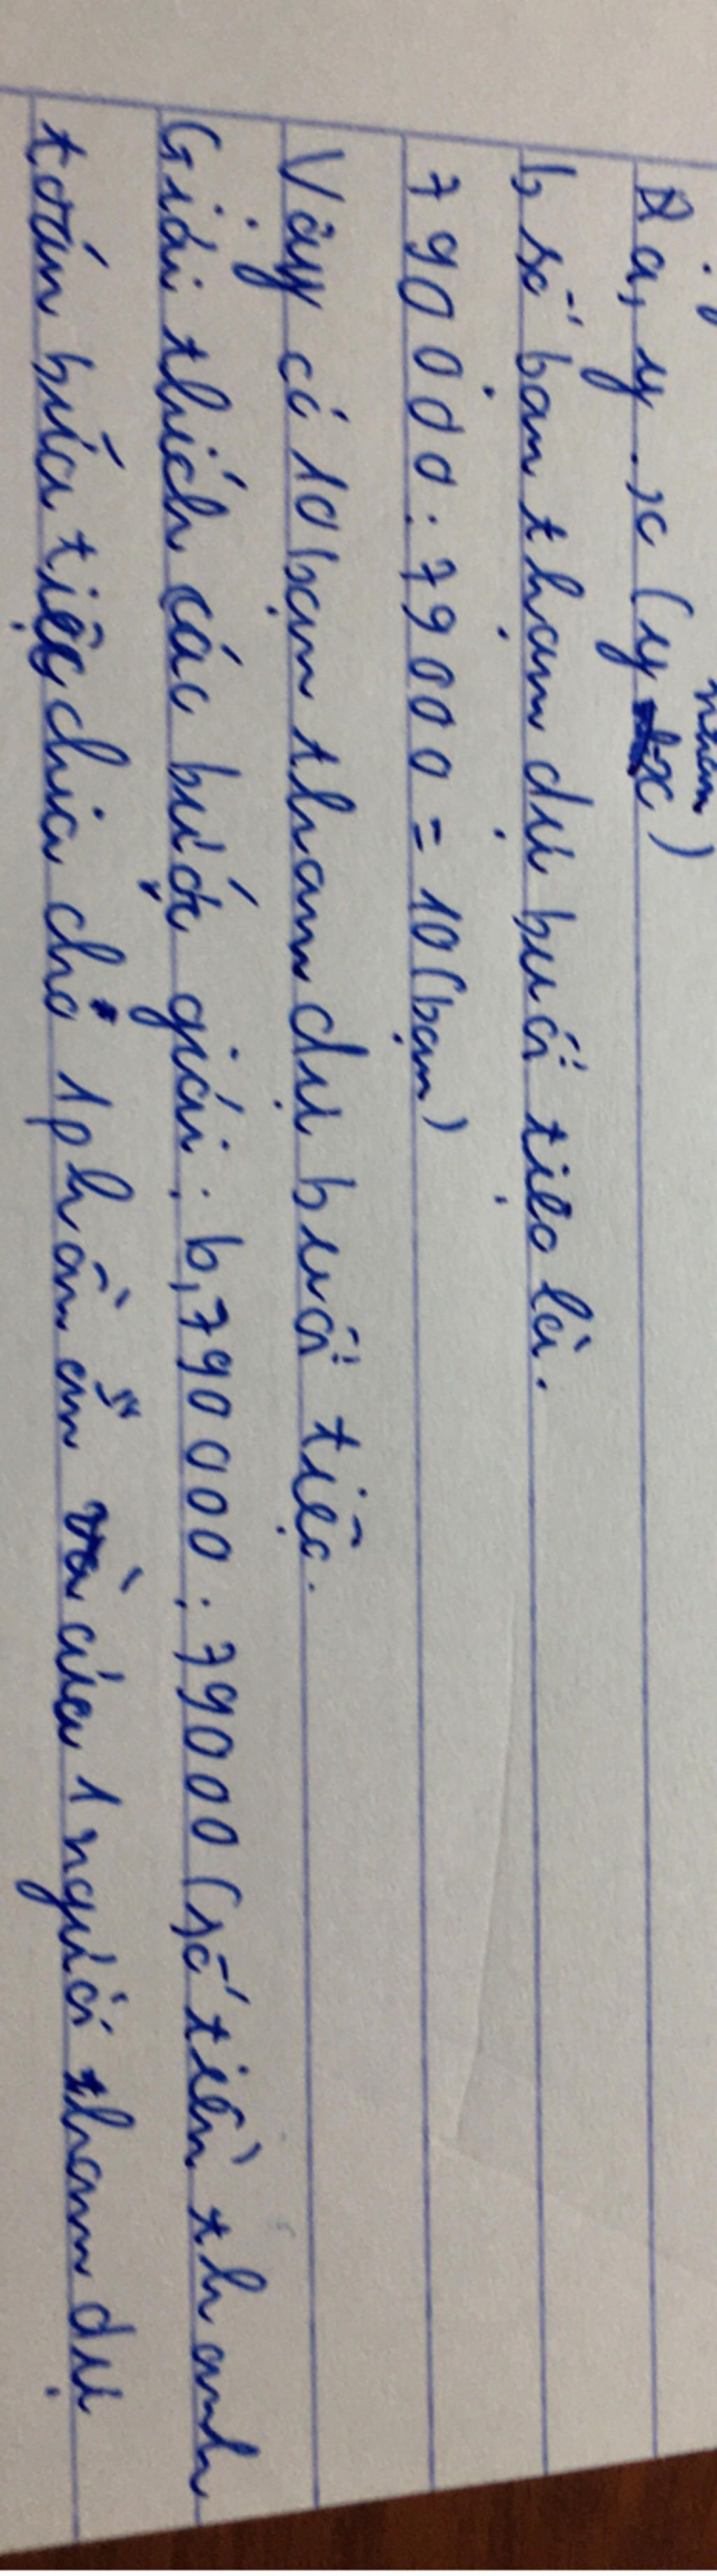 a, y . x (y x)
b, số bạn tham dự buổi tiệc là.
790000 : 79000 = 10 (bạn)
Vậy có 10 bạn tham dự buổi tiệc.
Giải thích các bước giải : b, 790000 : 79000 (số tiền thanh
toán bữa tiệc chia cho 1 phần ăn và của 1 người tham dự